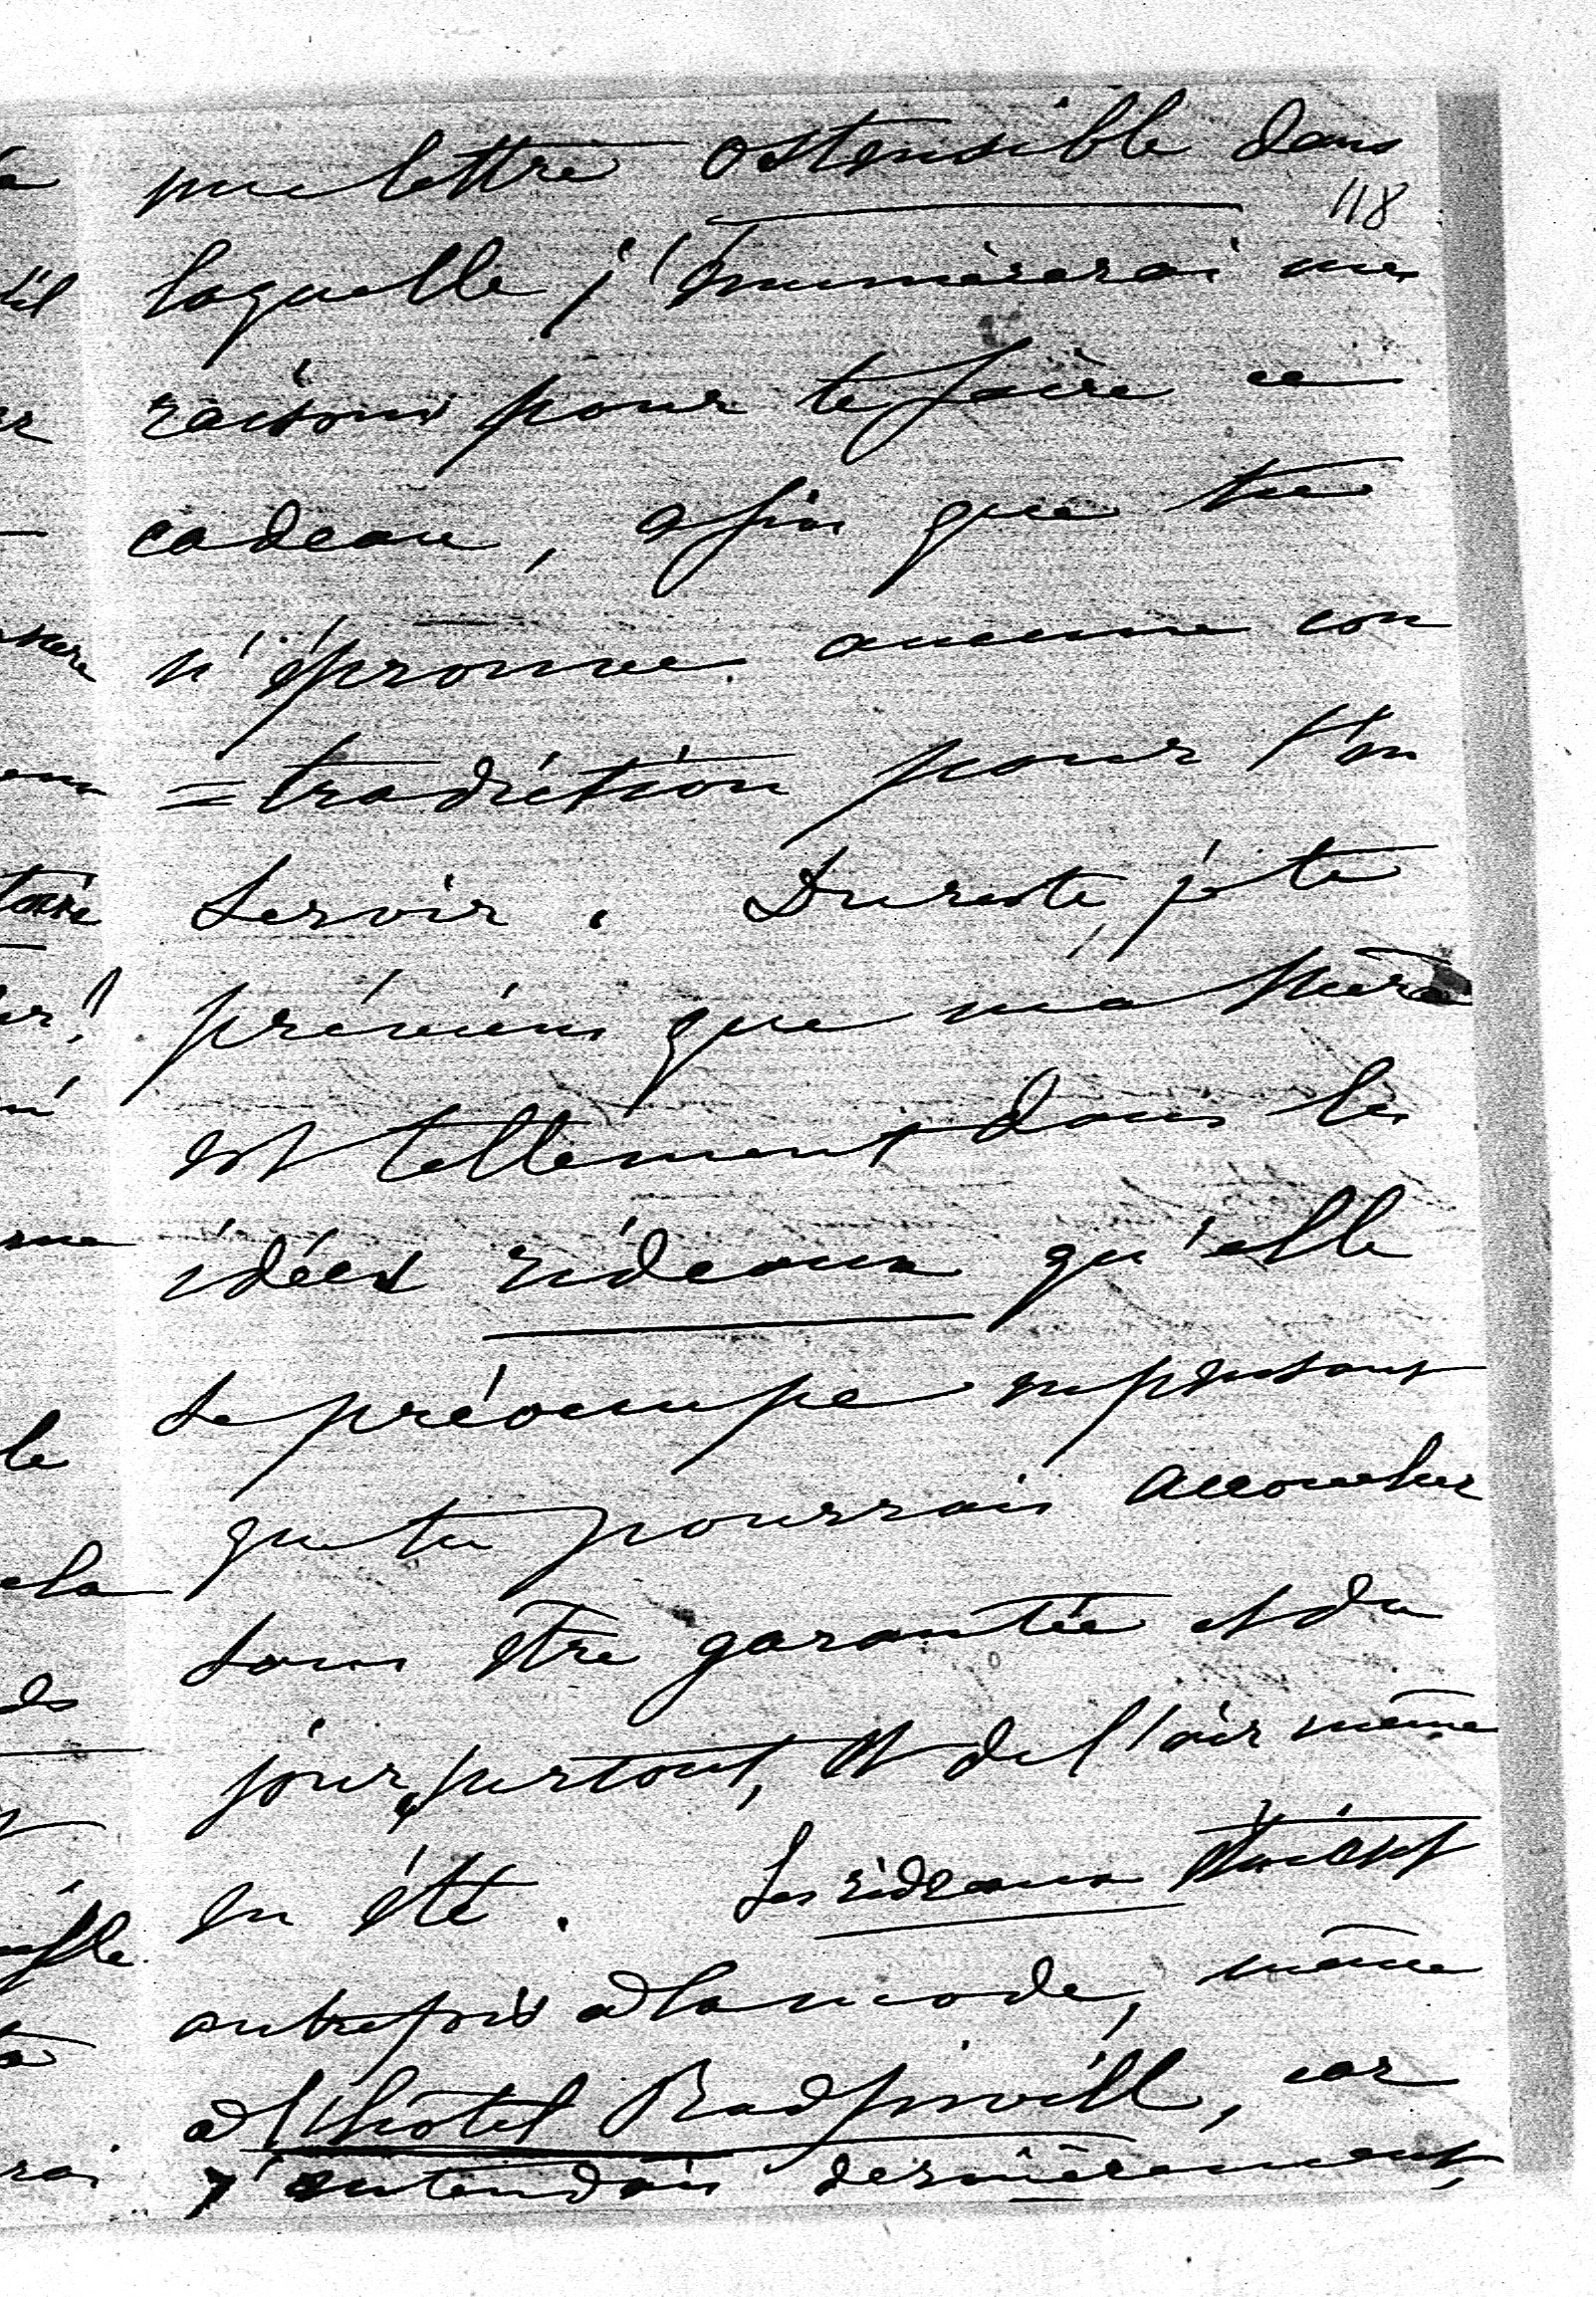 une lettre ostensible dans
118
laquelle j'énumèrerai mes
raisons pour te faire ce
cadeau, afin que tu
n'éprouves aucune con
=tradiction pour t'en
servir. Du reste, je te
préviens que ma mère
est tellement dans les
idées rideaux qu'elle
se préoccupe en pensant
que tu pourrais accoucher
sans être garantie et du
jour, surtout, et de l'air même
en été. Les rideaux étaient
autrefois à la mode, même
à l'hôtel Radziwill, car
j'entendais dernièrement,